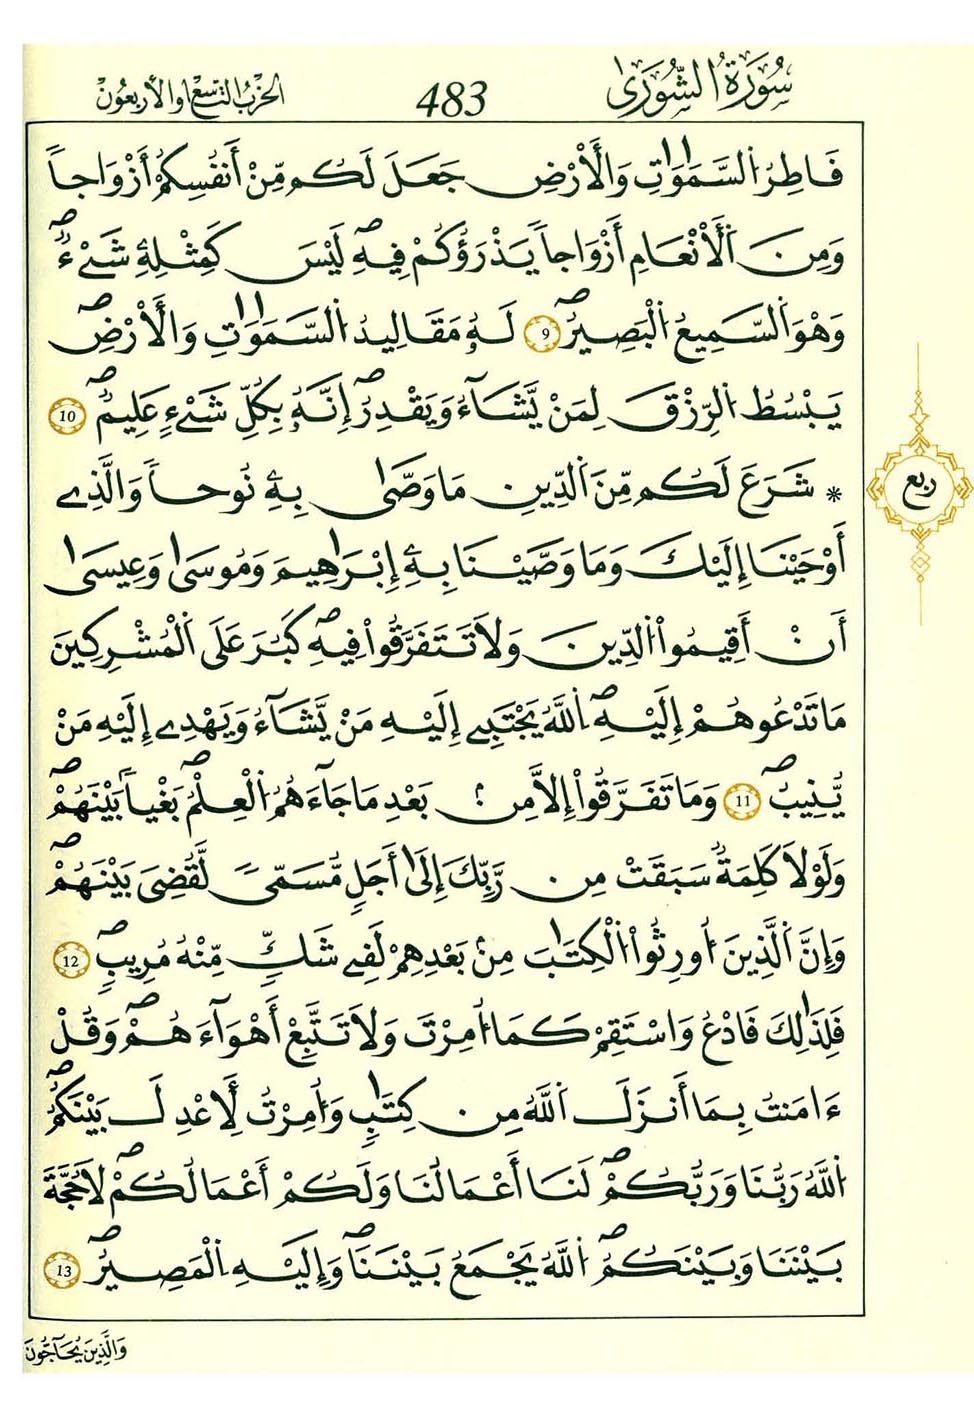 سُورَةُ الشُّورَىٰ
483
الحِزْبُ التَّاسِعُ وَالأَرْبَعُونَ
فَاطِرُ السَّمَٰوَٰتِ وَالْأَرْضِ جَعَلَ لَكُم مِّنْ أَنفُسِكُمْ أَزْوَاجاً
وَمِنَ اَلْأَنْعَامِ أَزْوَاجاً يَذْرَؤُكُمْ فِيهِۖ لَيْسَ كَمِثْلِهِۦ شَےْءٌۖ
وَهْوَ اَلسَّمِيعُ اُلْبَصِيرُۖ 9 لَهُۥ مَقَالِيدُ اُلسَّمَٰوَٰتِ وَالْأَرْضِۖ
يَبْسُطُ اُلرِّزْقَ لِمَنْ يَّشَآءُ وَيَقْدِرُۖ إِنَّهُۥ بِكُلِّ شَےْءٍ عَلِيمٌۖ 10
* شَرَعَ لَكُم مِّنَ اَلدِّينِ مَا وَصّ۪ىٰ بِهِۦ نُوحاً وَالَّذِے
أَوْحَيْنَا إِلَيْكَ وَمَا وَصَّيْنَا بِهِۦ إِبْرَٰهِيمَ وَمُوسَىٰ وَعِيسَىٰ
أَنْ أَقِيمُواْ اُلدِّينَ وَلَا تَتَفَرَّقُواْ فِيهِۖ كَبُرَ عَلَى اَلْمُشْرِكِينَ
مَا تَدْعُوهُمْ إِلَيْهِۖ اِللَّهُ يَجْتَبِے إِلَيْهِ مَنْ يَّشَآءُ وَيَهْدِے إِلَيْهِ مَنْ
يُّنِيبُۖ 11 وَمَا تَفَرَّقُواْ إِلَّا مِنۢ بَعْدِ مَا جَآءَهُمُ اُلْعِلْمُۖ بَغْياَۢ بَيْنَهُمْۖ
وَلَوْلَا كَلِمَةٌ سَبَقَتْ مِن رَّبِّكَ إِلَىٰ أَجَلٍ مُّسَمّىً لَّقُضِيَ بَيْنَهُمْۖ
وَإِنَّ اَلَّذِينَ أُورِثُواْ اُلْكِتَٰبَ مِنۢ بَعْدِهِمْ لَفِے شَكٍّ مِّنْهُ مُرِيبٍۖ 12
فَلِذَٰلِكَ فَادْعُ وَاسْتَقِمْ كَمَا أُمِرْتَ وَلَا تَتَّبِعْ أَهْوَآءَهُمْۖ وَقُلْ
ءَامَنتُ بِمَا أَنزَلَ اَللَّهُ مِن كِتَٰبٍ وَأُمِرْتُ لِأَعْدِلَ بَيْنَكُمُۖ
اُللَّهُ رَبُّنَا وَرَبُّكُمْۖ لَنَا أَعْمَالُنَا وَلَكُمْ أَعْمَالُكُمْۖ لَا حُجَّةَ
بَيْنَنَا وَبَيْنَكُمُۖ اُللَّهُ يَجْمَعُ بَيْنَنَاۖ وَإِلَيْهِ اِلْمَصِيرُۖ 13
ربع
وَالَّذِينَ يُحَآجُّونَ